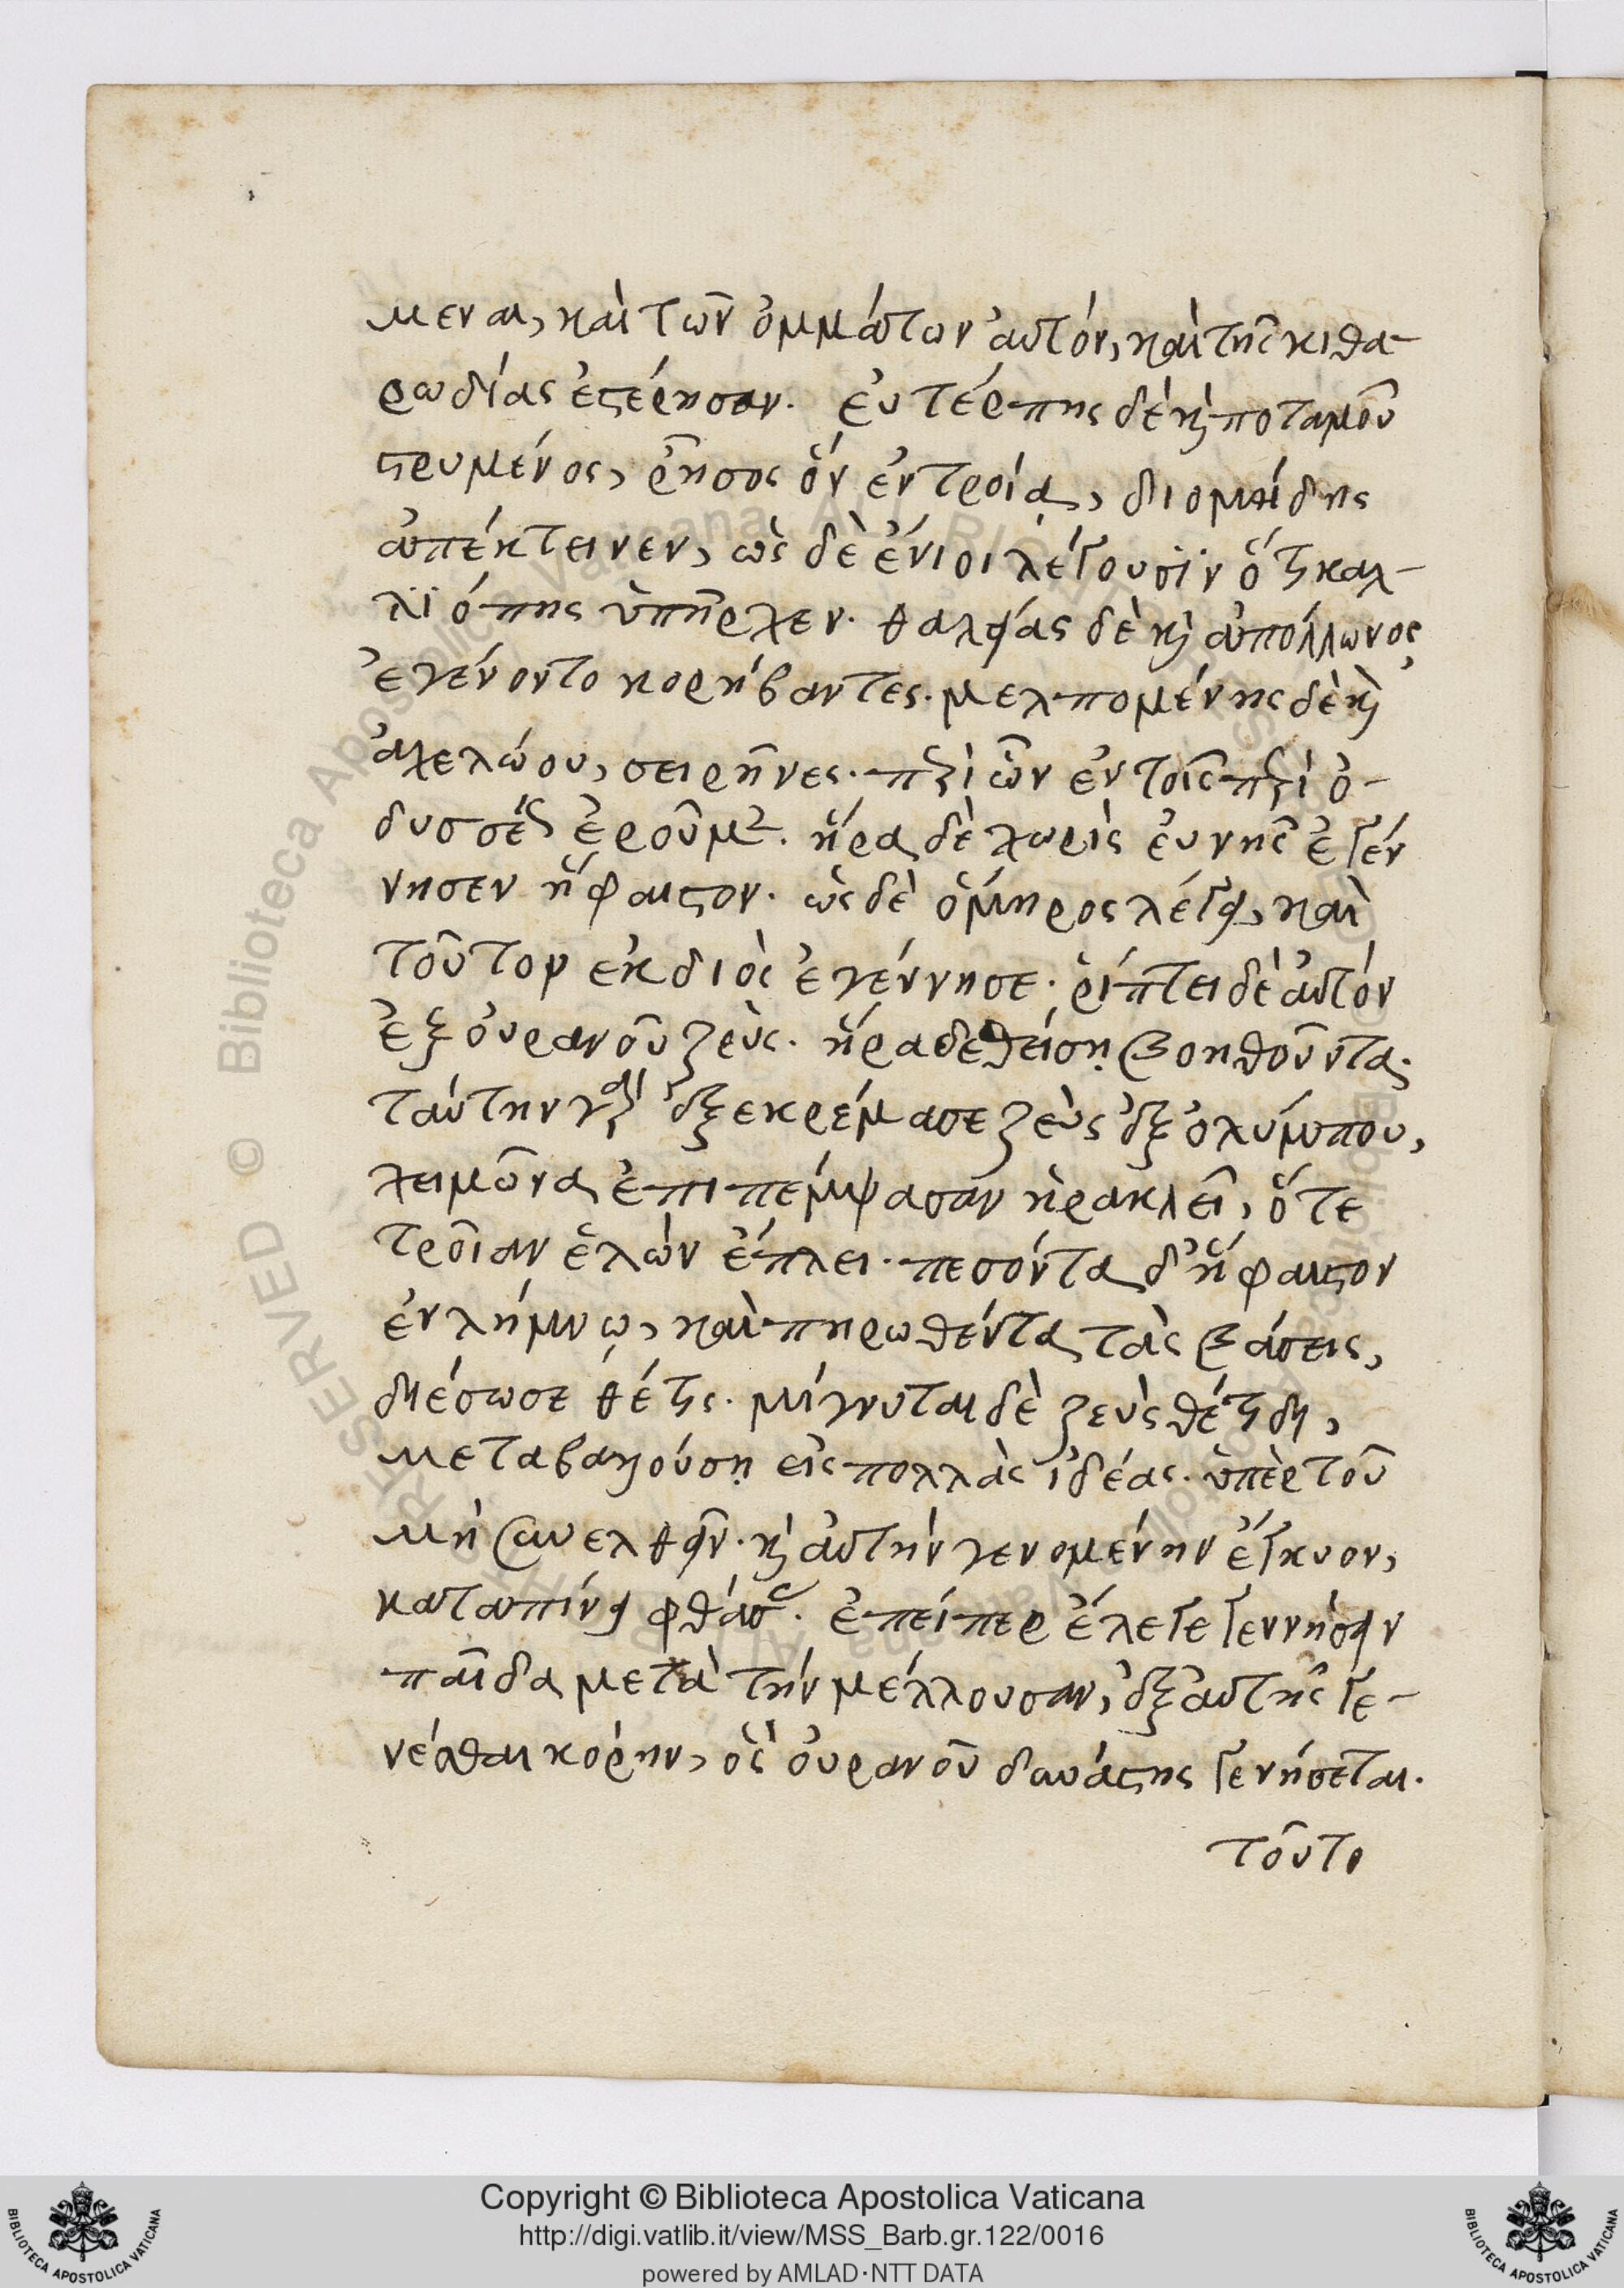 μεναι, καὶ τῶν ὀμμάτων αὐτόν, καὶ τῆς κιθα-
ρωδίας ἐστέρησαν. εὐτέρπης δὲ καὶ ποταμοῦ
στρυμένος, ῥῆσος ὅν ἐν τροίᾳ, διομήδης
ἀπέκτεινεν, ὡς δὲ ἔνιοι λέγουσϊν ὅτι καλ-
λϊόπης ὑπῆρχεν. θαλείας δὲ καὶ ἀπόλλωνος
ἐγένοντο κορήβαντες. μελπομένης δὲ καὶ
ἀχελώου, σειρῆνες. περὶ ὧν ἐν τοῖς περὶ ὀ-
δυσσέως ἐροῦμεν. ἥρα δὲ χωρὶς εὐνῆς ἐγέν
νησεν ἥφαιστον. ὡς δὲ ὅμηρος λέγει, καὶ
τοῦτον ἐκ διὸς ἐγέννησε. ῥίπτει δὲ αὐτόν
ἐξ οὐρανοῦ ζεὺς. ἥρα δεθείσῃ βοηθοῦντα.
ταύτην γὰρ ἐξεκρέμασε ζεὺς ἐξ ὀλύμπου,
χειμῶνα ἐπιπέμψασαν ἡρακλεῖ, ὅτε
τροῖαν ἑλὼν ἔπλει. πεσόντα δ' ἥφαιστον
ἐν λήμνω, καὶ πηρωθέντα τὰς βάσεις,
διέσωσε θέτις. μίγνυται δὲ ζεὺς θέτιδι,
μεταβαλούσῃ εἰς πολλὰς ἰδέας. ὑπὲρ τοῦ
μὴ συνελθεῖν. καὶ αὐτὴν γενομένην ἔγκυον,
καταπίνει φθάσας. ἐπείπερ ἔλεγε γεννήσειν
παῖδα μετὰ τήν μέλλουσαν, ἐξ αὐτῆς γε-
νέσθαι κόρην, ὃς οὐρανοῦ δυνάστης γενήσεται.
τοῦτο
Copyright © Biblioteca Apostolica Vaticana
http://digi.vatlib.it/view/MSS_Barb.gr.122/0016
powered by AMLAD·NTT DATA
BIBLIOTECA APOSTOLICA VATICANA
BIBLIOTECA APOSTOLICA VATICANA